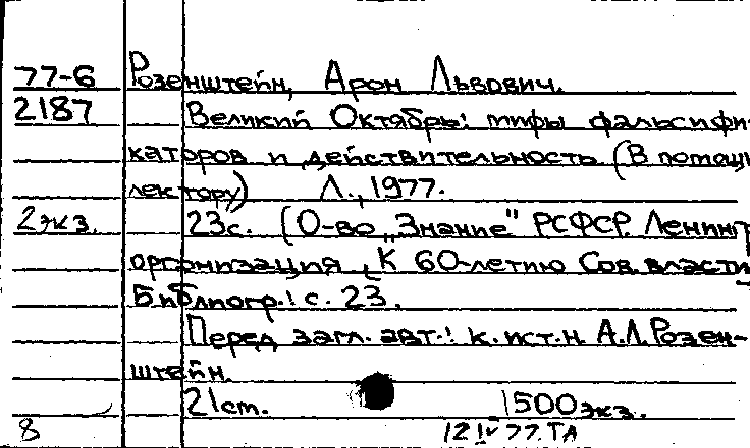 77-6 Розенштейн, Арон Львович.
2187 Великий Октябрь: мифы фальсифи-
каторов и действительность (В помощь
лектору) Л., 1977.
2экз. 23с. (О-во „Знание" РСФСР. Ленингр
организация, К 60-летию Сов. власти
Библиогр.: с. 23.
Перед загл. авт.: к. ист. н. А.Л. Розен-
штейн.
21см. 1500экз.
8 12 IV 77. ТА